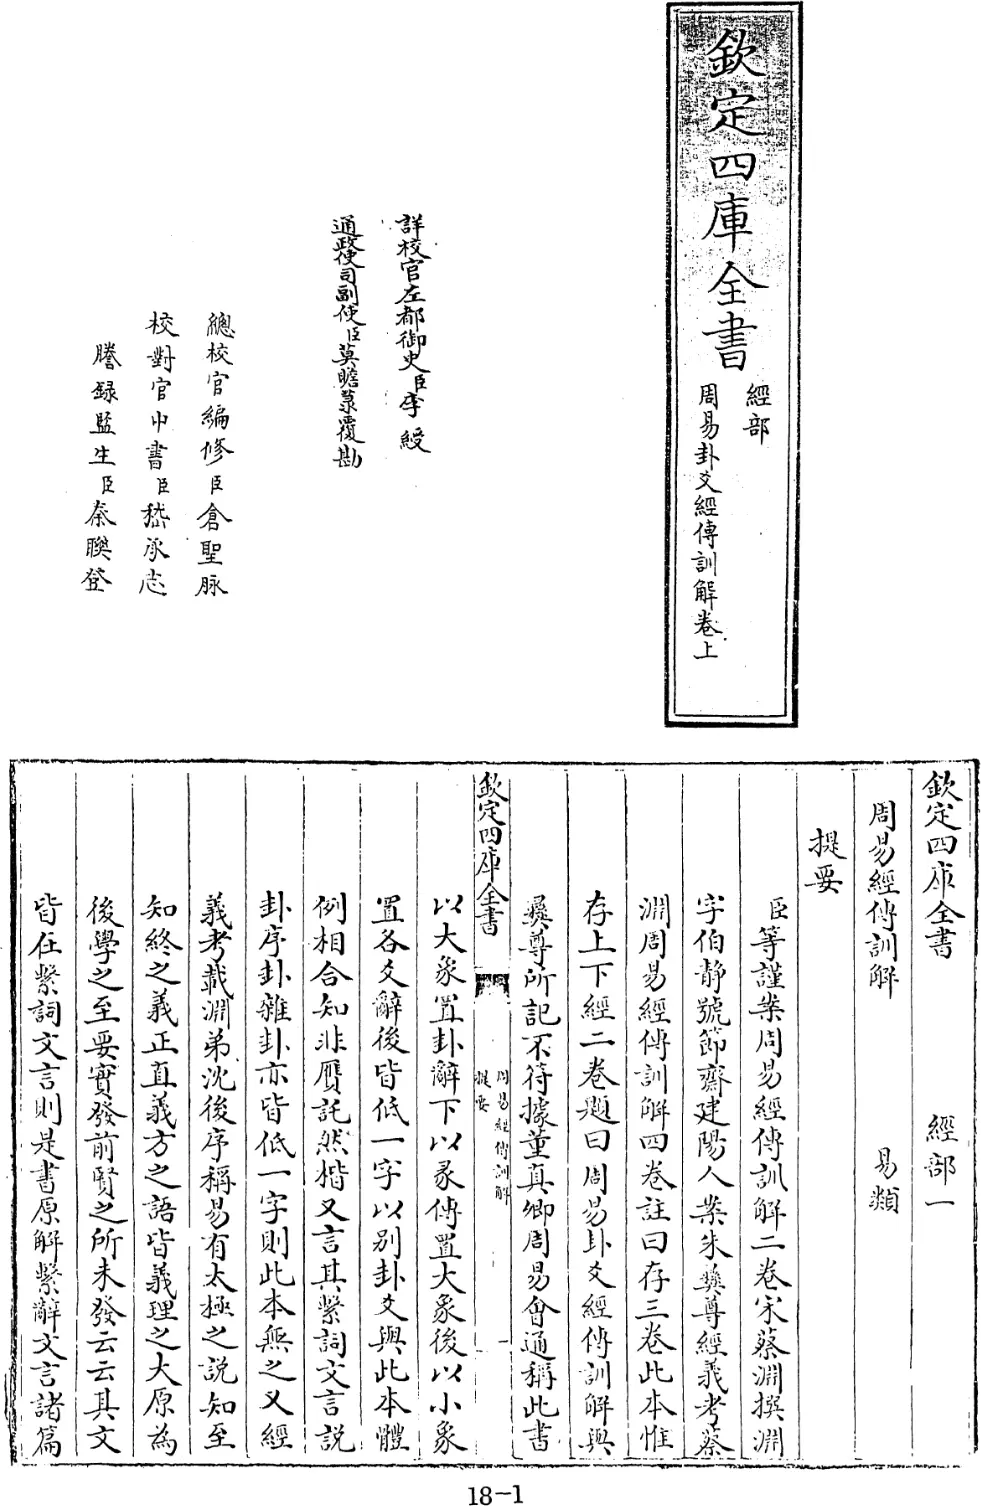 欽定四庫全書
經部
周易卦爻經傳訓解卷上
詳校官左都御史臣李綬
通政使司副使臣莫瞻菉覆勘
總校官編修臣倉聖脉
校對官中書臣嵇承志
謄録監生臣秦聨登
欽定四庫全書 經部一
周易經傳訓解 易類
提要
臣等謹案周易經傳訓解二卷宋蔡淵撰淵
字伯静號節齋建陽人案朱彝尊經義考蔡
淵周易經傳訓解四卷註曰存三卷此本惟
存上下經二卷題曰周易卦爻經傳訓解與
彞尊所記不符據董真卿周易會通稱此書
欽定四庫全書
周易經傳訓解
提要
一
以大象置卦辭下以彖傳置大象後以小象
置各爻辭後皆低一字以别卦爻與此本體
例相合知非贋託然楷又言其繫詞文言説
卦序卦雜卦亦皆低一字則此本無之又經
義考載淵弟沈後序稱易有太極之説知至
知終之義正直義方之語皆義理之大原為
後學之至要實發前賢之所未發云云其文
皆在繫詞文言則是書原解繫辭文言諸篇
18-1